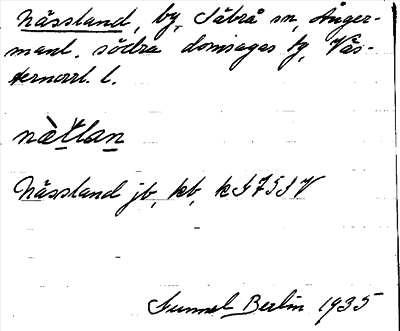 Nässland, by, Säbrå sn, Ånger-
manl. södra domsagas tg, Väs-
ternorrl. l.
nä̀tlan
Nässland jb, kb, k G75SV
Gunnel Berlin 1935